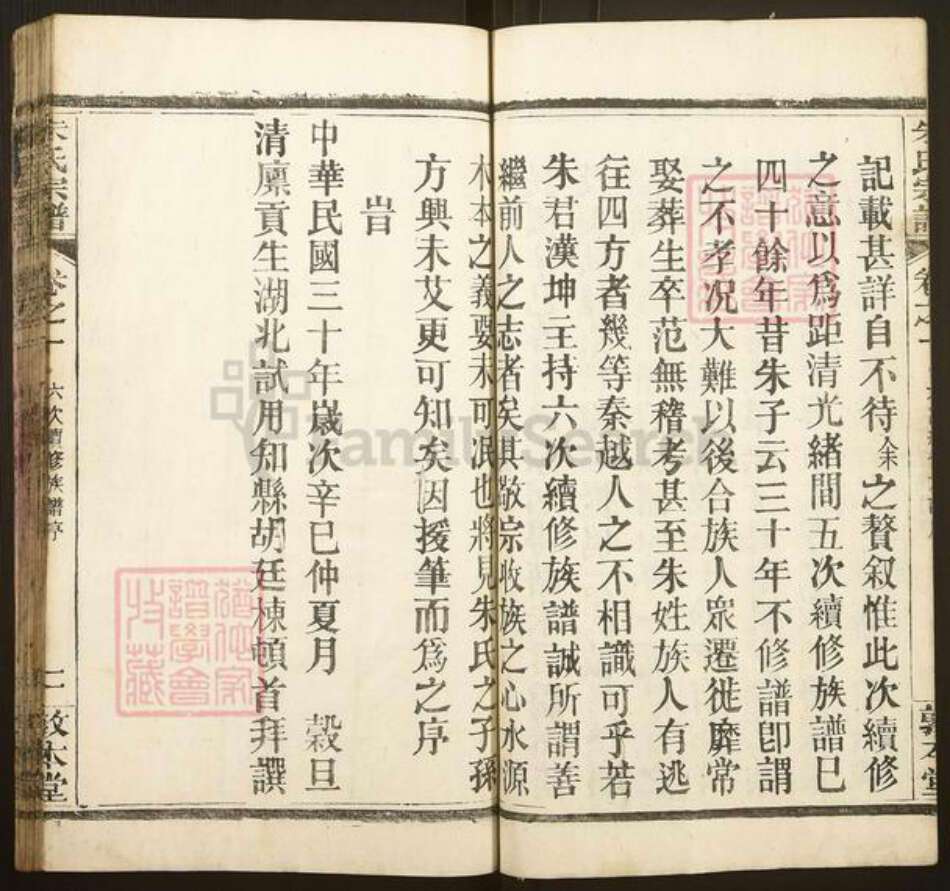 記載甚詳自不待余之贅叙惟此次續修
之意以爲距清光緒間五次續修族譜已
四十餘年昔朱子云三十年不修譜卽謂
之不孝况大難以後合族人衆遷徙靡常
娶葬生卒范無稽考甚至朱姓族人有逃
往四方者幾等秦越人之不相識可乎若
朱君漢坤主持六次續修族譜誠所謂善
繼前人之志者矣其敬宗收族之心水源
木本之義要未可泯也將見朱氏之子孫
方興未艾更可知矣因援筆而爲之序
旹
中華民國三十年歲次辛巳仲夏月 穀旦
清廩貢生湖北試用知縣胡廷棟頓首拜譔
朱氏宗譜 卷之一 六次續修族譜序 二 敦本堂
FamilySearch
譜學會
收藏